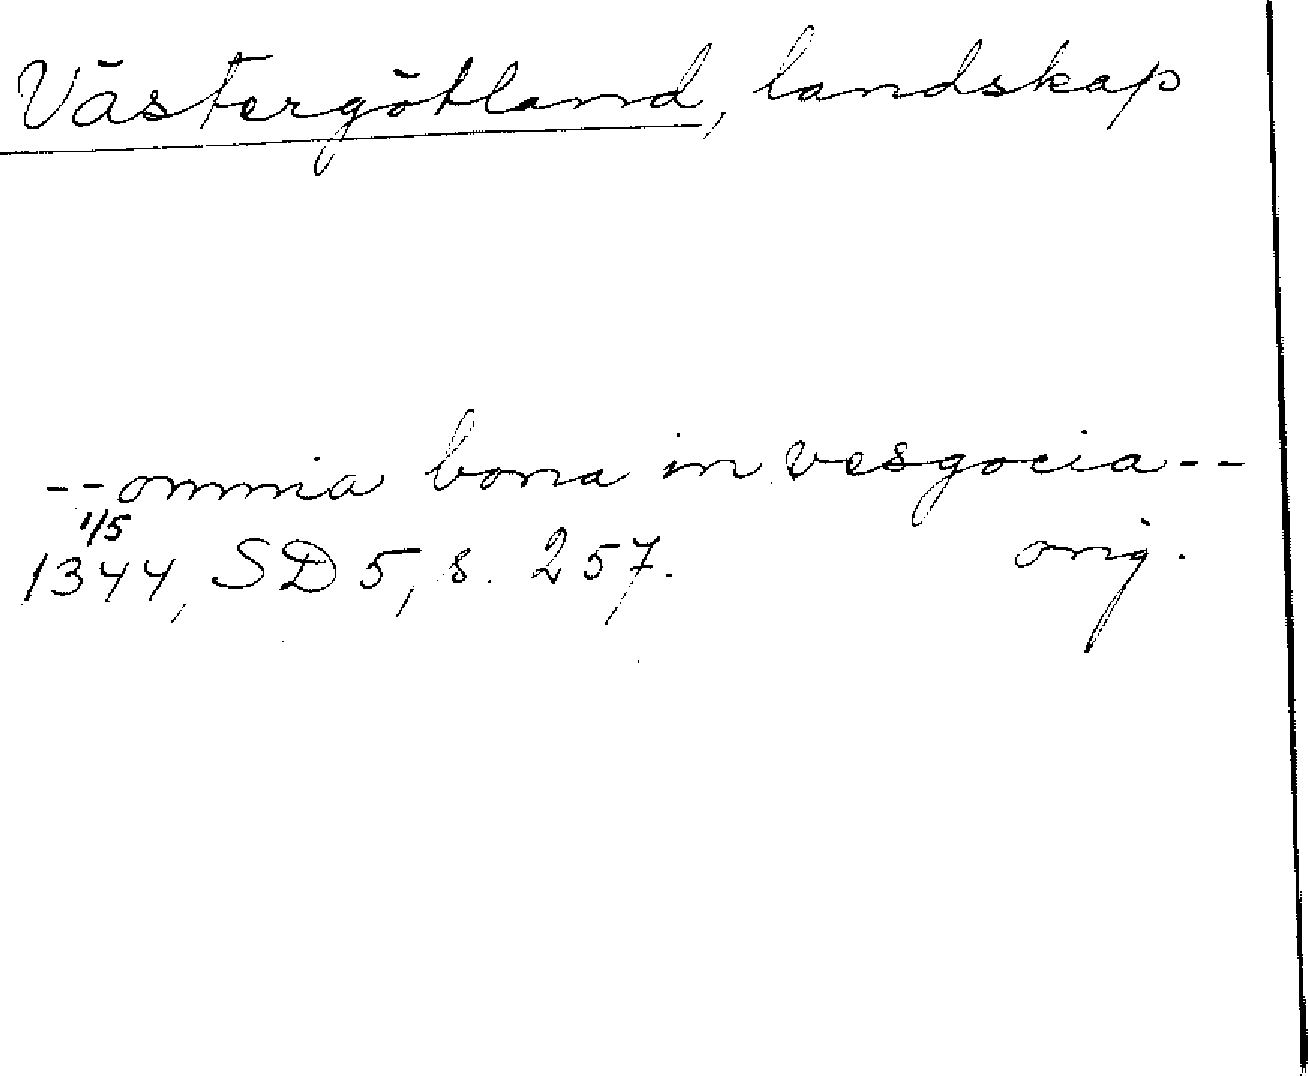 Västergötland, landskap
-- omnia bona in vesgocia --
1/5
1344, SD 5, s. 257. orig.